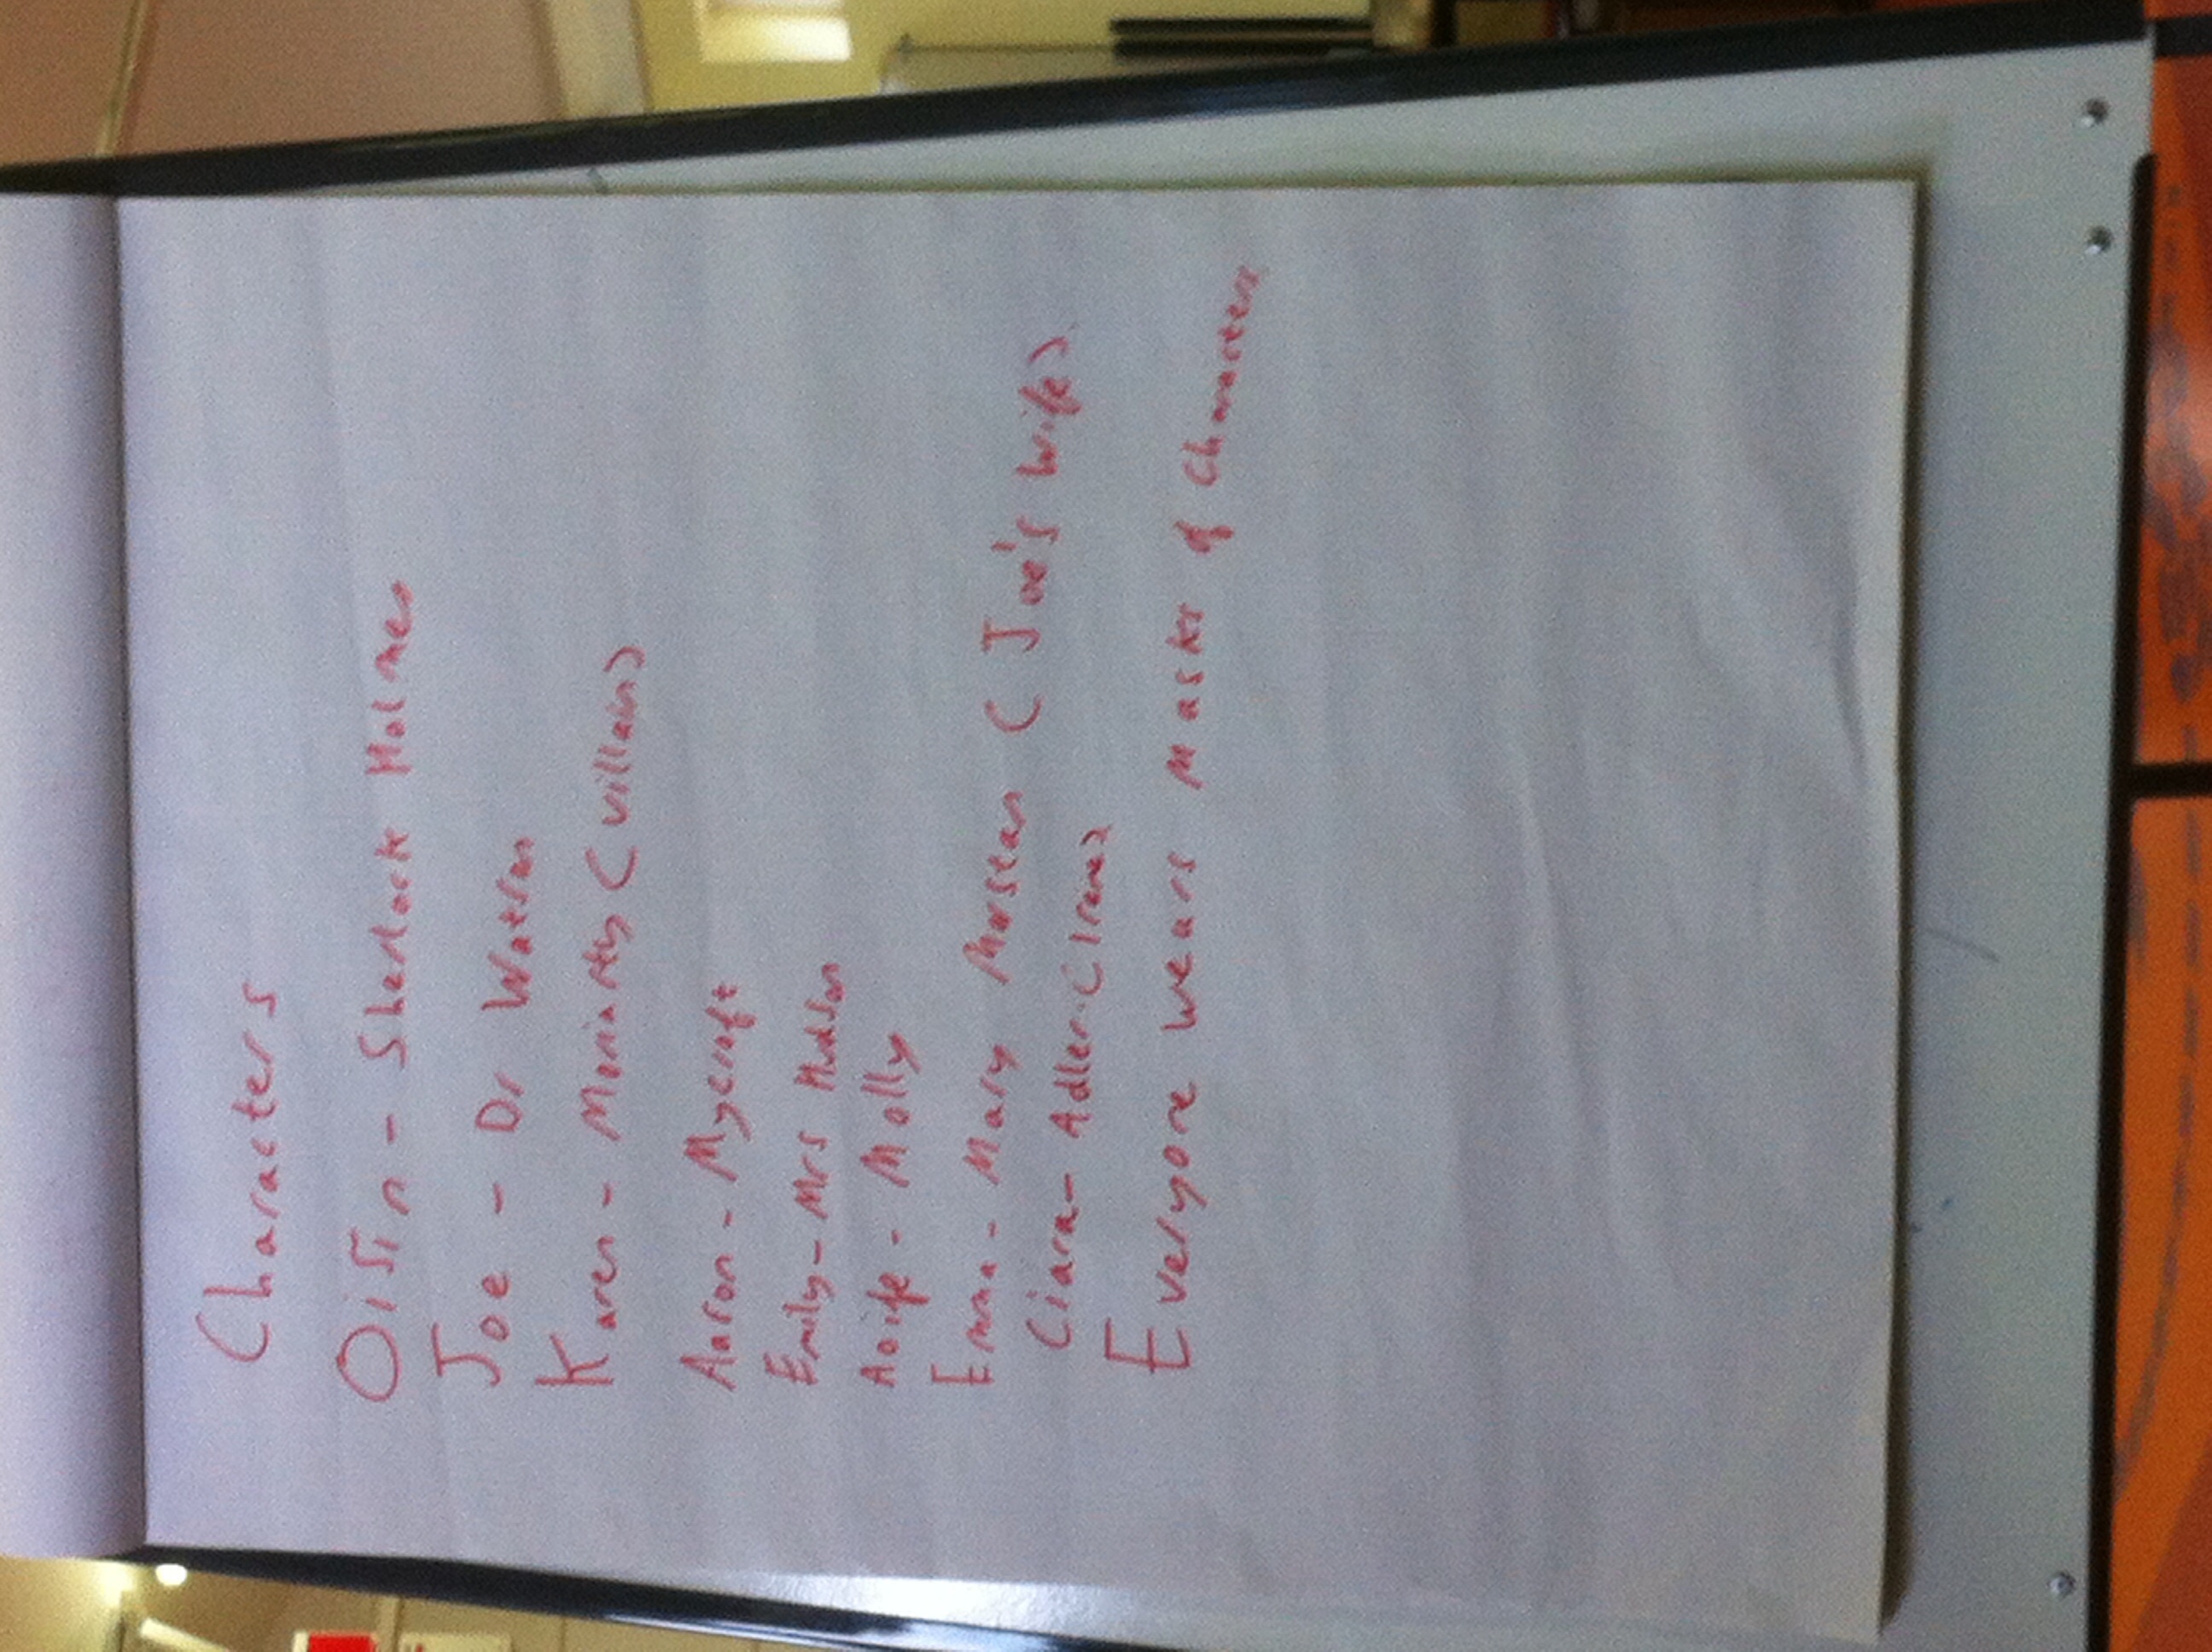 Characters
Oisín - Sherlock Holmes
Joe - Dr Watson
Karen - Moriarty (villain)
Aaron - Mycroft
Emily - Mrs Hudson
Aoife - Molly
Emma - Mary Morstan (Joe's wife)
Ciara - Adler (Irene)
Everyone wears masks of Characters